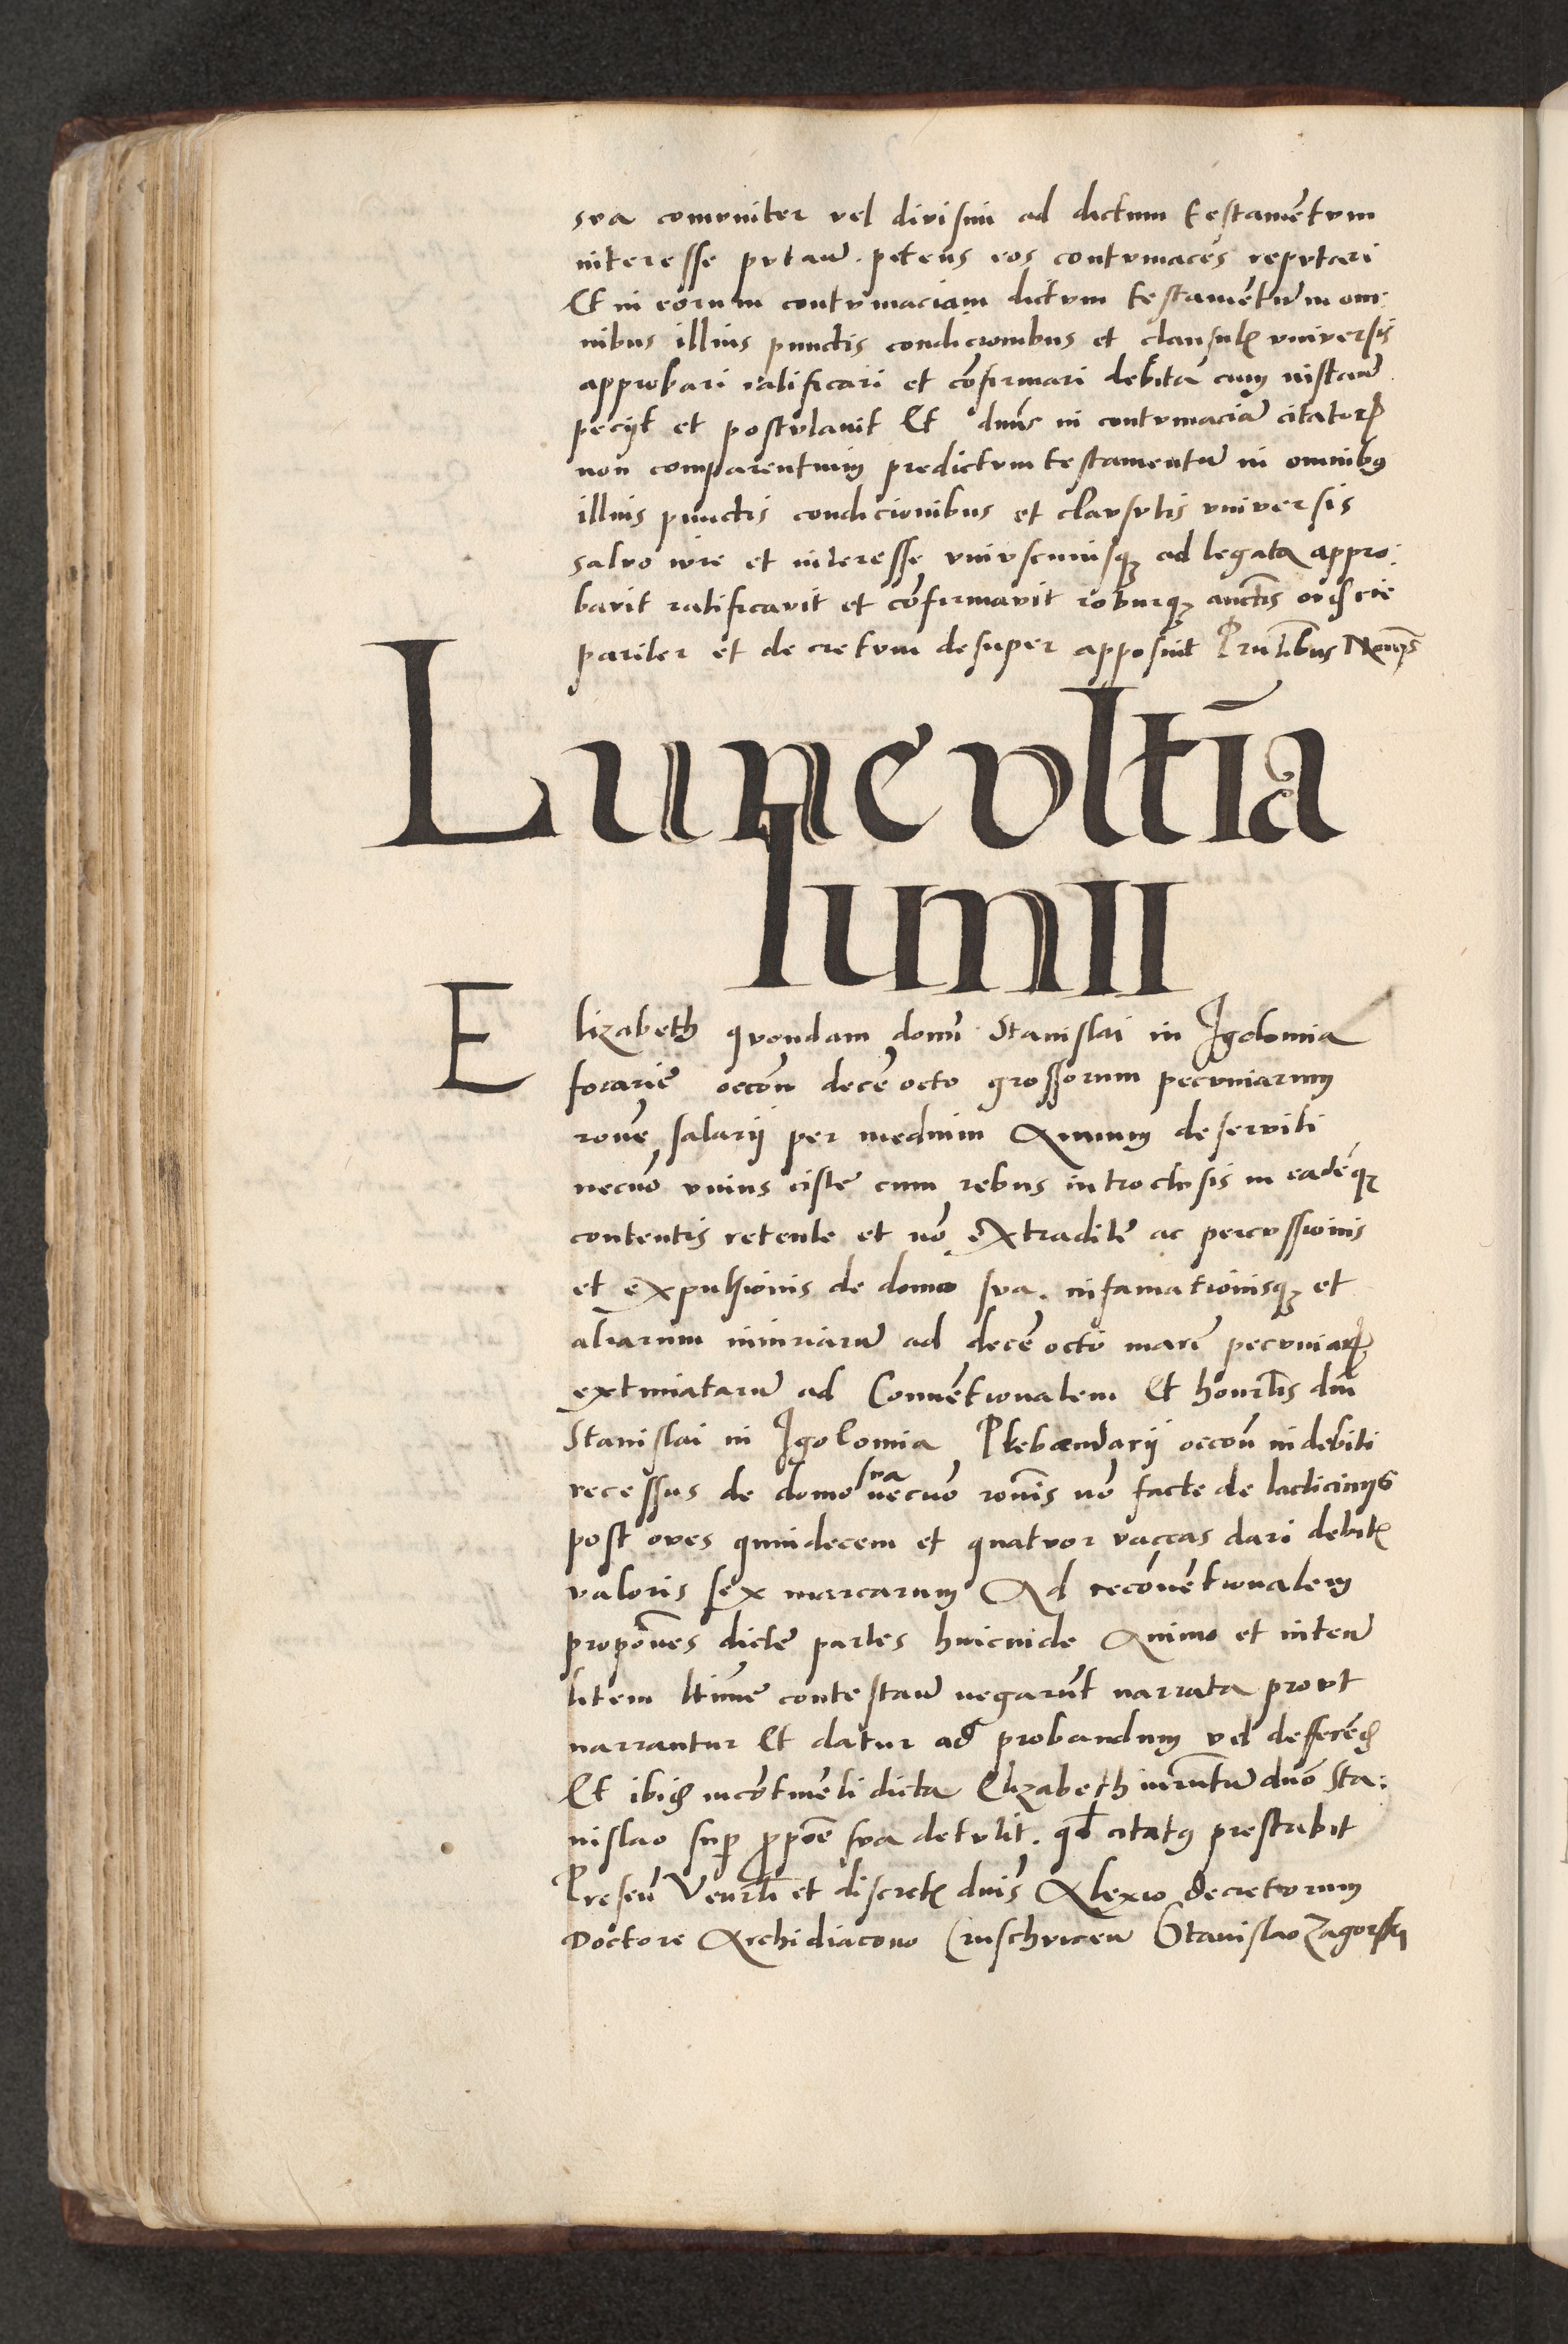 sva comvniter vel divisim ad dictum testamẽtvm
interesse pvtaun̄. petens eos contvmaces repvtari
Et in eorum contvmaciam dictvm testamẽtum in om:
nibus illius punctis condicionibus et clausulis vniversis
approbari ratificari et cõfirmari debita cum instaun̄
peciit et postvlavit Et dn̄us in contvmaciã citatorꝝ
non comparentium predictvm testamentũ in omnibꝰ
illius punctis condicionibus et clavsvlis vniversis
salvo ivre et interesse vnivscuiusqꝫ ad legata appro:
bavit ratificavit et cõfirmavit roburqꝫ auctis ordīcie
pariter et decretvm desuper apposuit Pn̄tibus
Lune vltīa
Iunii
Elizabeth qvondam domi Stanislai in Igolomia
focarie occõn decẽ octo grossorum pecvniarum
rõne salarii per medium Annum deserviti
necnõ vnius ciste cum rebus introclvsis in eadẽqꝫ
contentis retente et nõ extradite ac percvssionis
et expulsionis de domo sva. infamationisqꝫ et
aliarum iniuriarũ ad decẽ octo marc̄ pecvniarꝝ
extimatarũ ad Conuẽtionalem Et honorabilis dn̄i
Stanislai in Igolomia Plebandarii occõn indebiti
recessus de domo sva necnõ rõnis nõ facte de lacticiniis
post oves quindecem et quatvor vaccas dari debitis
valoris sex marcarum Ad recõuẽtionalem
propõnes dicte partes hincinde Animo et inten̄
litem ltīme contestan̄ negarũt narrata provt
narrantur Et datur ad probandum vel defferẽd̄
Et ibid̄ incõtinẽti dicta Elizabeth iurm̄tũ dnõ Sta:
nislao sup̱ p̱põe sva detvlit. qd̄ citatꝰ prestabit
Presen̄ Venr̄li et discretis dnis̄ Alexio decretorum
Doctore Archidiacono Cruschvicen̄ Stanislao Zagorski